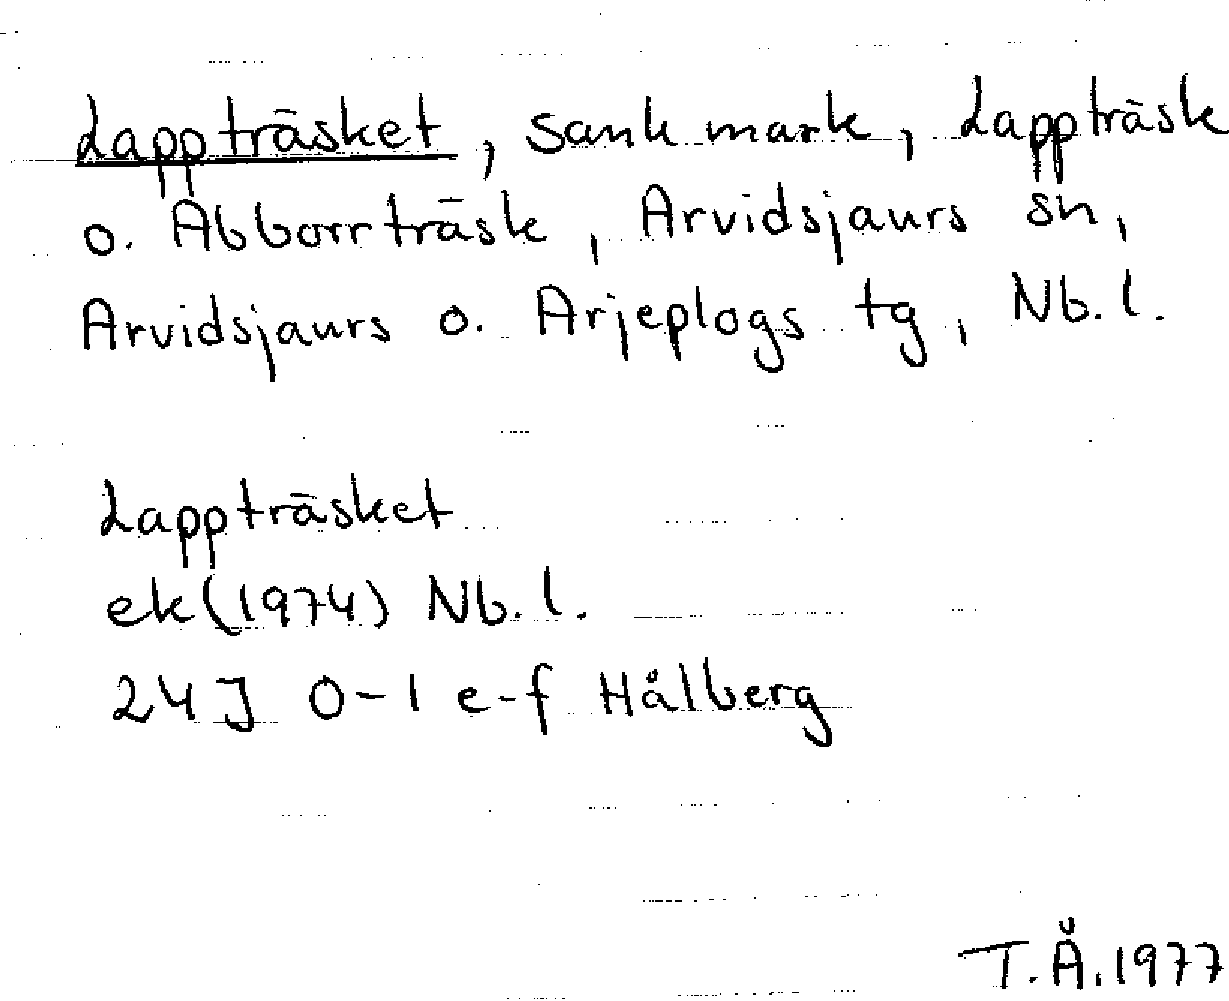 Lappträsket, sank mark, Lappträsk
o. Abborrträsk, Arvidsjaurs sn,
Arvidsjaurs o. Arjeplogs tg, Nb. l.
Lappträsket
ek (1974) Nb. l.
24J 0-1 e-f Hålberg
T.Å. 1977